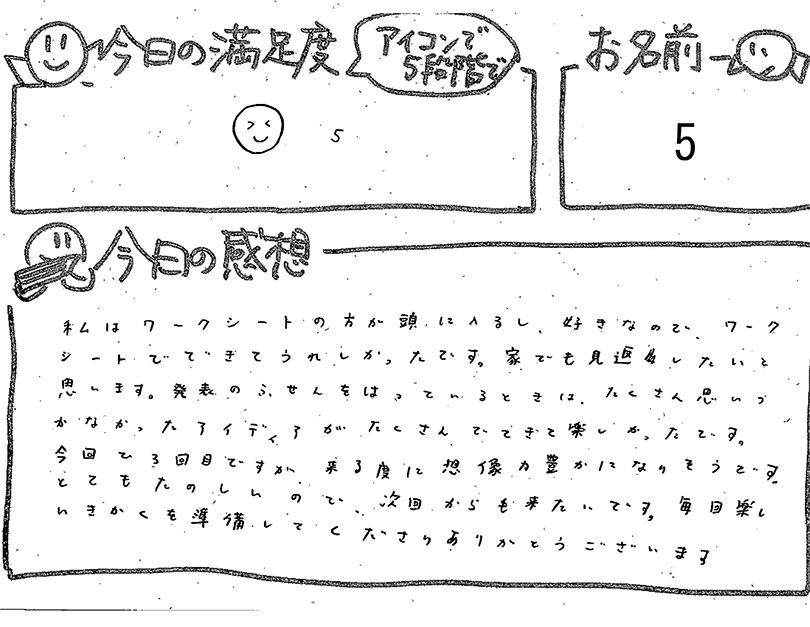 今日の満足度
アイコンで
5段階で
お名前
5
5
今日の感想
私はワークシートの方が頭に入るし、好きなので、ワーク
シートでできてうれしかったです。家でも見返ししたいと
思います。発表のふせんをはっているときは、たくさん思いつ
かなかったアイディアがたくさんでてきて楽しかったです。
今回で3回目ですが、来る度に想像力豊かになりそうです。
とてもたのしいので、次回からも来たいです。毎回楽し
いきかくを準備してくださりありがとうございます